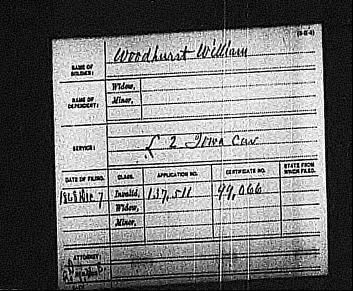 (3-014)
NAME OF SOLDIER: Woodhurst William
NAME OF DEPENDENT: Widow,
Minor,
SERVICE: L 2 Iowa Cav
DATE OF FILING. CLASS. APPLICATION NO. CERTIFICATE NO. STATE FROM WHICH FILED.
7 Invalid, 137,511 99,066
Widow,
Minor,
ATTORNEY: